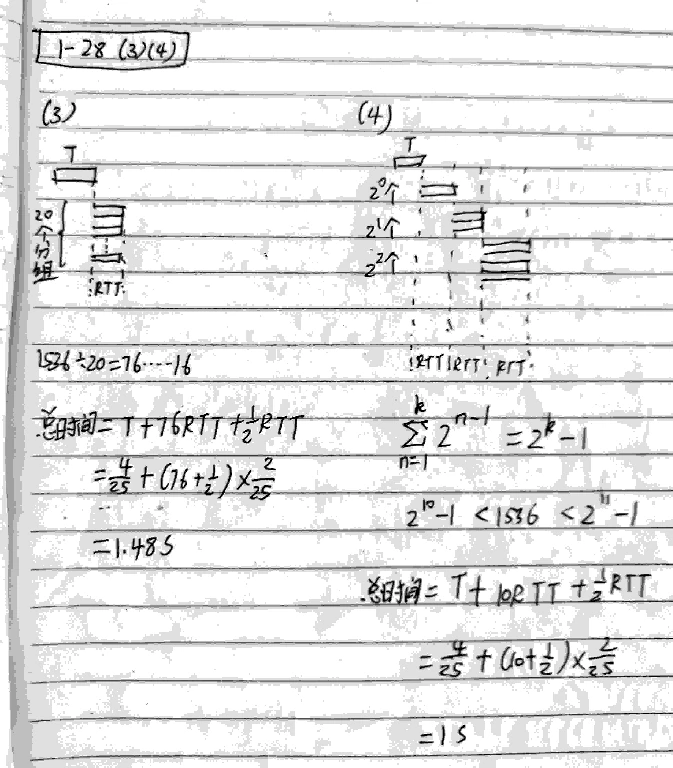 1-28 (3)(4)
(3)
T
20个分组
RTT
1536÷20=76……16
总时间=T+76RTT+½RTT
=4/25+(76+½)×2/25
=1.48s
(4)
T
2⁰个
2¹个
2²个
RTT RTT RTT
∑_{n=1}^{k} 2^{n-1} = 2^k-1
2¹⁰-1 <1536 <2¹¹-1
总时间=T+10RTT+½RTT
=4/25+(10+½)×2/25
=1s